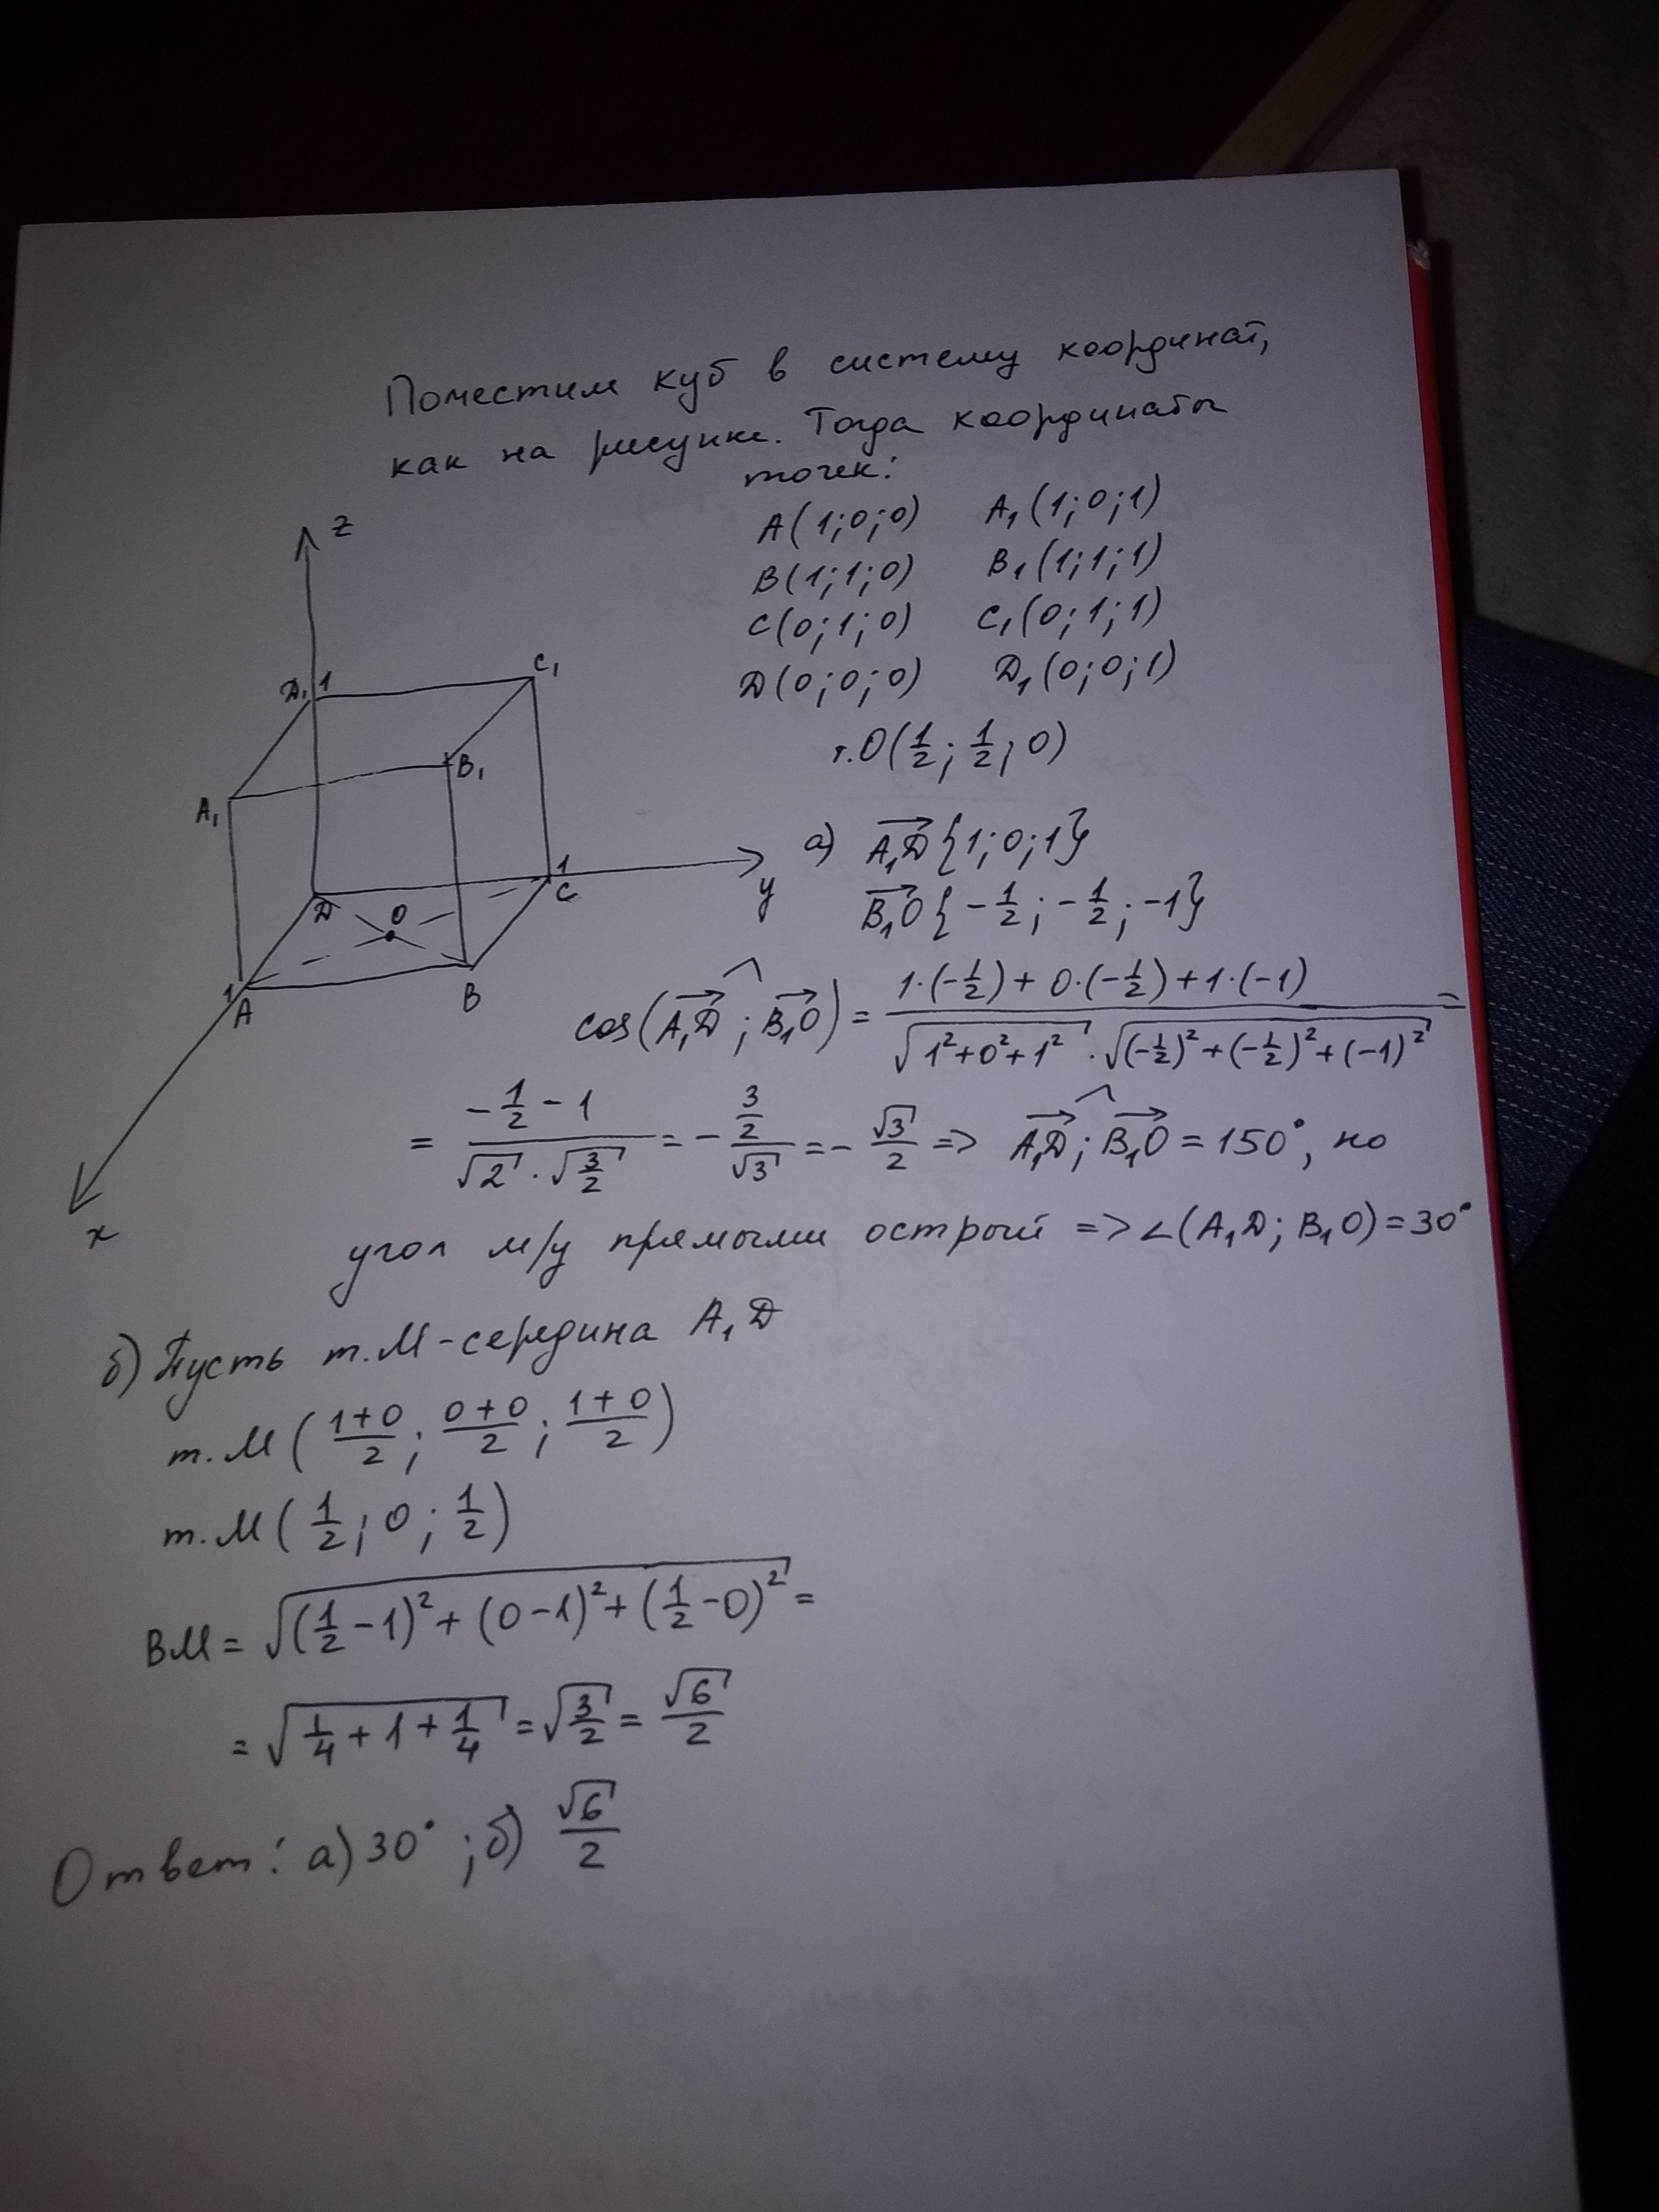 Поместим куб в систему координат,
как на рисунке. Тогда координаты
точек:
A(1;0;0) A₁(1;0;1)
B(1;1;0) B₁(1;1;1)
C(0;1;0) C₁(0;1;1)
D(0;0;0) D₁(0;0;1)
т.O(1/2; 1/2; 0)
z
D₁ 1
C₁
B₁
A₁
1
C
y
D
O
1
A
B
x
а) A₁D→{1;0;1}
B₁O→{-1/2; -1/2; -1}
cos(A₁D→ ^; B₁O→) = (1·(-1/2) + 0·(-1/2) + 1·(-1)) / (√(1²+0²+1²) · √((-1/2)²+(-1/2)²+(-1)²)) =
= (-1/2 - 1) / (√2 · √(3/2)) = - (3/2)/√3 = - √3/2 => A₁D→ ^; B₁O→ = 150°, но
угол м/у прямыми острый => ∠(A₁D; B₁O) = 30°
б) Пусть т.M-середина A₁D
т.M((1+0)/2; (0+0)/2; (1+0)/2)
т.M(1/2; 0; 1/2)
BM = √((1/2 - 1)² + (0-1)² + (1/2 - 0)²) =
= √(1/4 + 1 + 1/4) = √(3/2) = √6/2
Ответ: а) 30°; б) √6/2